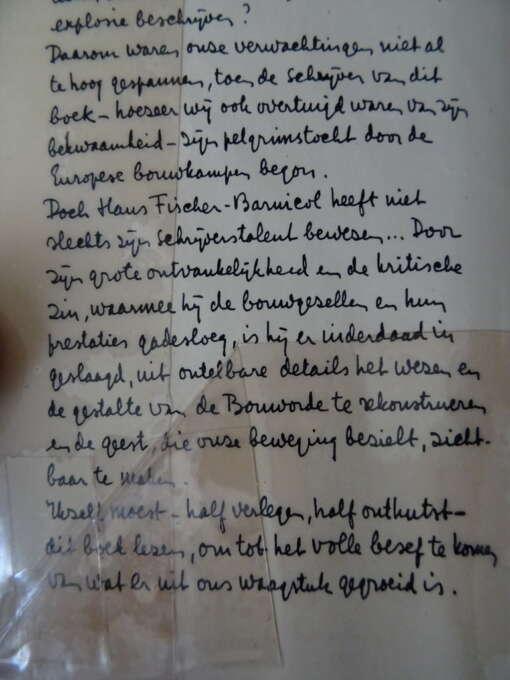 explosie beschrijven?
Daarom waren onze verwachtingen niet al
te hoog gespannen, toen de schrijver van dit
boek – hoezeer wij ook overtuigd waren van zijn
bekwaamheid – zijn pelgrimstocht door de
Europese bouwkampen begon.
Doch Hans Fischer-Barnicol heeft niet
slechts zijn schrijverstalent bewezen... Door
zijn grote ontvankelijkheid en de kritische
zin, waarmee hij de bouwgezellen en hun
prestaties gadesloeg, is hij er inderdaad in
geslaagd, uit ontelbare details het wezen en
de gestalte van de Bouworde te rekonstrueren
en de geest, die onze beweging bezielt, zicht-
baar te maken.
Ikzelf moest – half verlegen, half onthutst –
dit boek lezen, om tot het volle besef te komen
van wat er uit ons waagstuk gegroeid is.